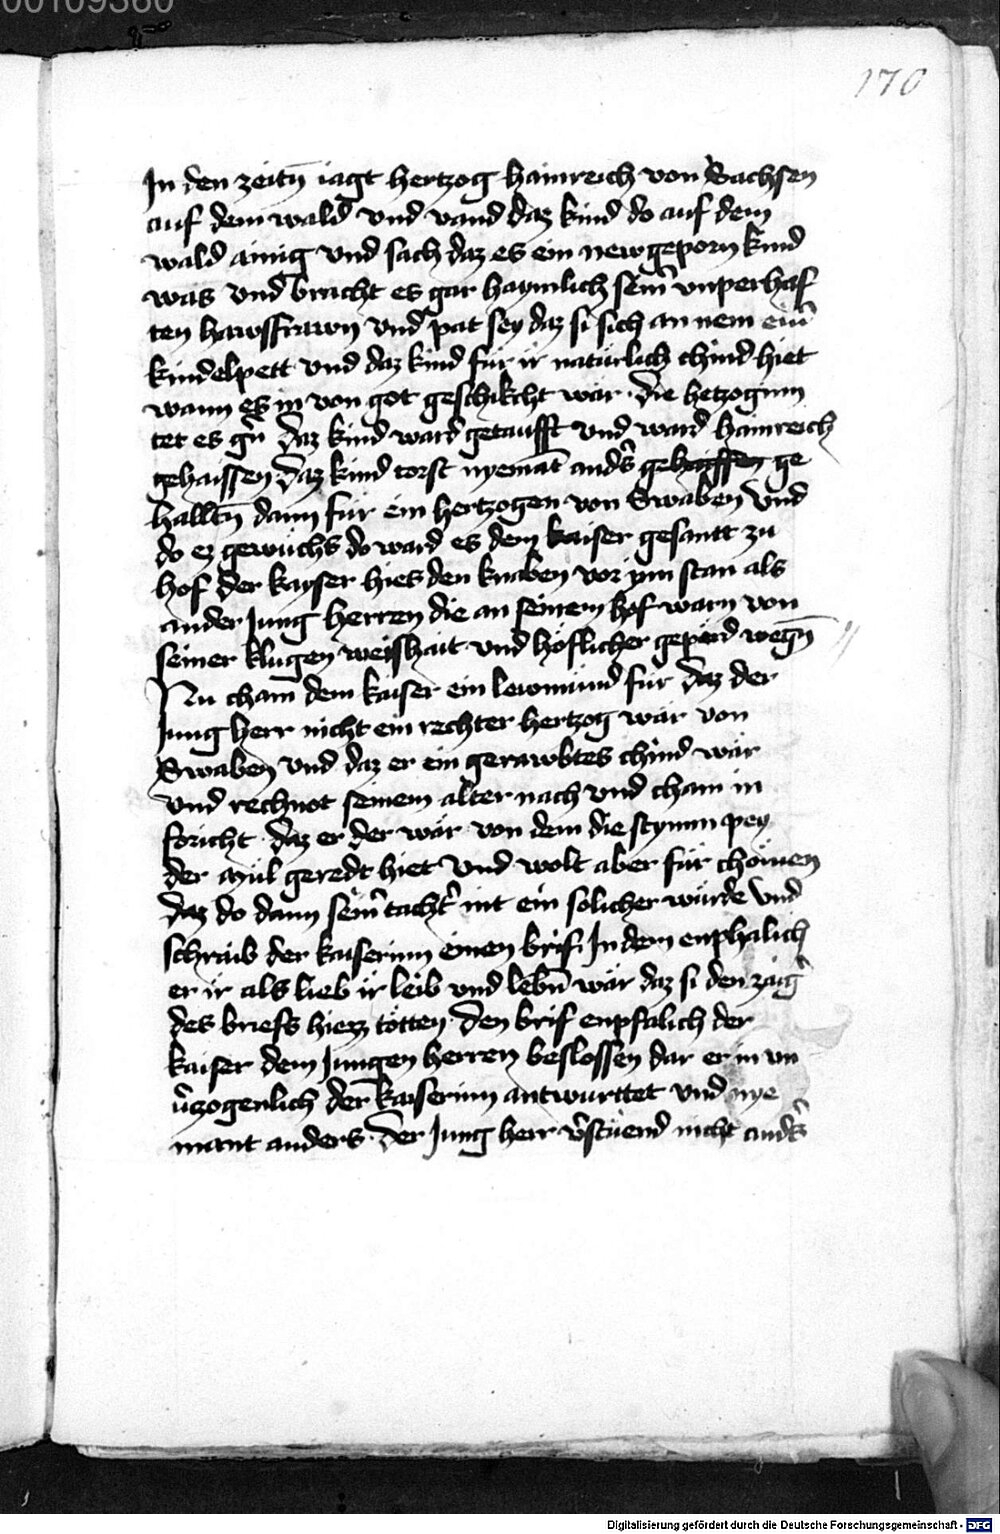 00109360
170
In den zeitn̄ iagt hertzog hainreich von Sachsen
auf dem wald vnd vand daz kind do auf dem
wald ainig vnd sach daz es ein new geporn kind
was vnd bracht es gar haymlich sein̄ vnperhaf
ten hawsfrawn vnd pat sey daz si sich an nem ein̄
kindelpett vnd daz kind fur ir naturlich chind hiet
wann es in von got geschikcht wär · die hetzoginn
tet es gn̄ daz kind ward getaufft vnd ward hainreich
gehaissen daz kind torst nyemāt anders gehaissen ge
halltn̄ dann für ein hertzogen von Swaben vnd
do ez gewuchs do ward es dem kaiser gesantt zu
hof der kayser hies den knaben vor ym stan als
ander Jung herren die an seinem hof warn von
seiner klugen weishait vnd höflicher gepärd wegn̄
Nu cham dem kaiser ein lewmund für daz der
Jung herr nicht ein rechter hertzog wär von
Swaben vnd daz er ein gerawbtes chind wär
vnd rechnot seinem alter nach vnd cham in
foricht · daz er der wär von dem die stymm pey
der mül geredt hiet vnd wolt aber für chömen
daz do dann sein̄ tacht̄ nit ein solicher wurde vnd
schraib der kaiserinn einen brif In dem enphalich
er ir als lieb ir leib vnd lebn̄ wär daz si den zaiḡ
des briefs hiezz tötten · den brif enpfalich der
kaiser dem Jungen herren beslossen dar er in vn
v̄zogenlich der kaiserinn antwurttet vnd nye
mant anders · der Jung herr v̄stuend nicht anders
Digitalisierung gefördert durch die Deutsche Forschungsgemeinschaft - DFG